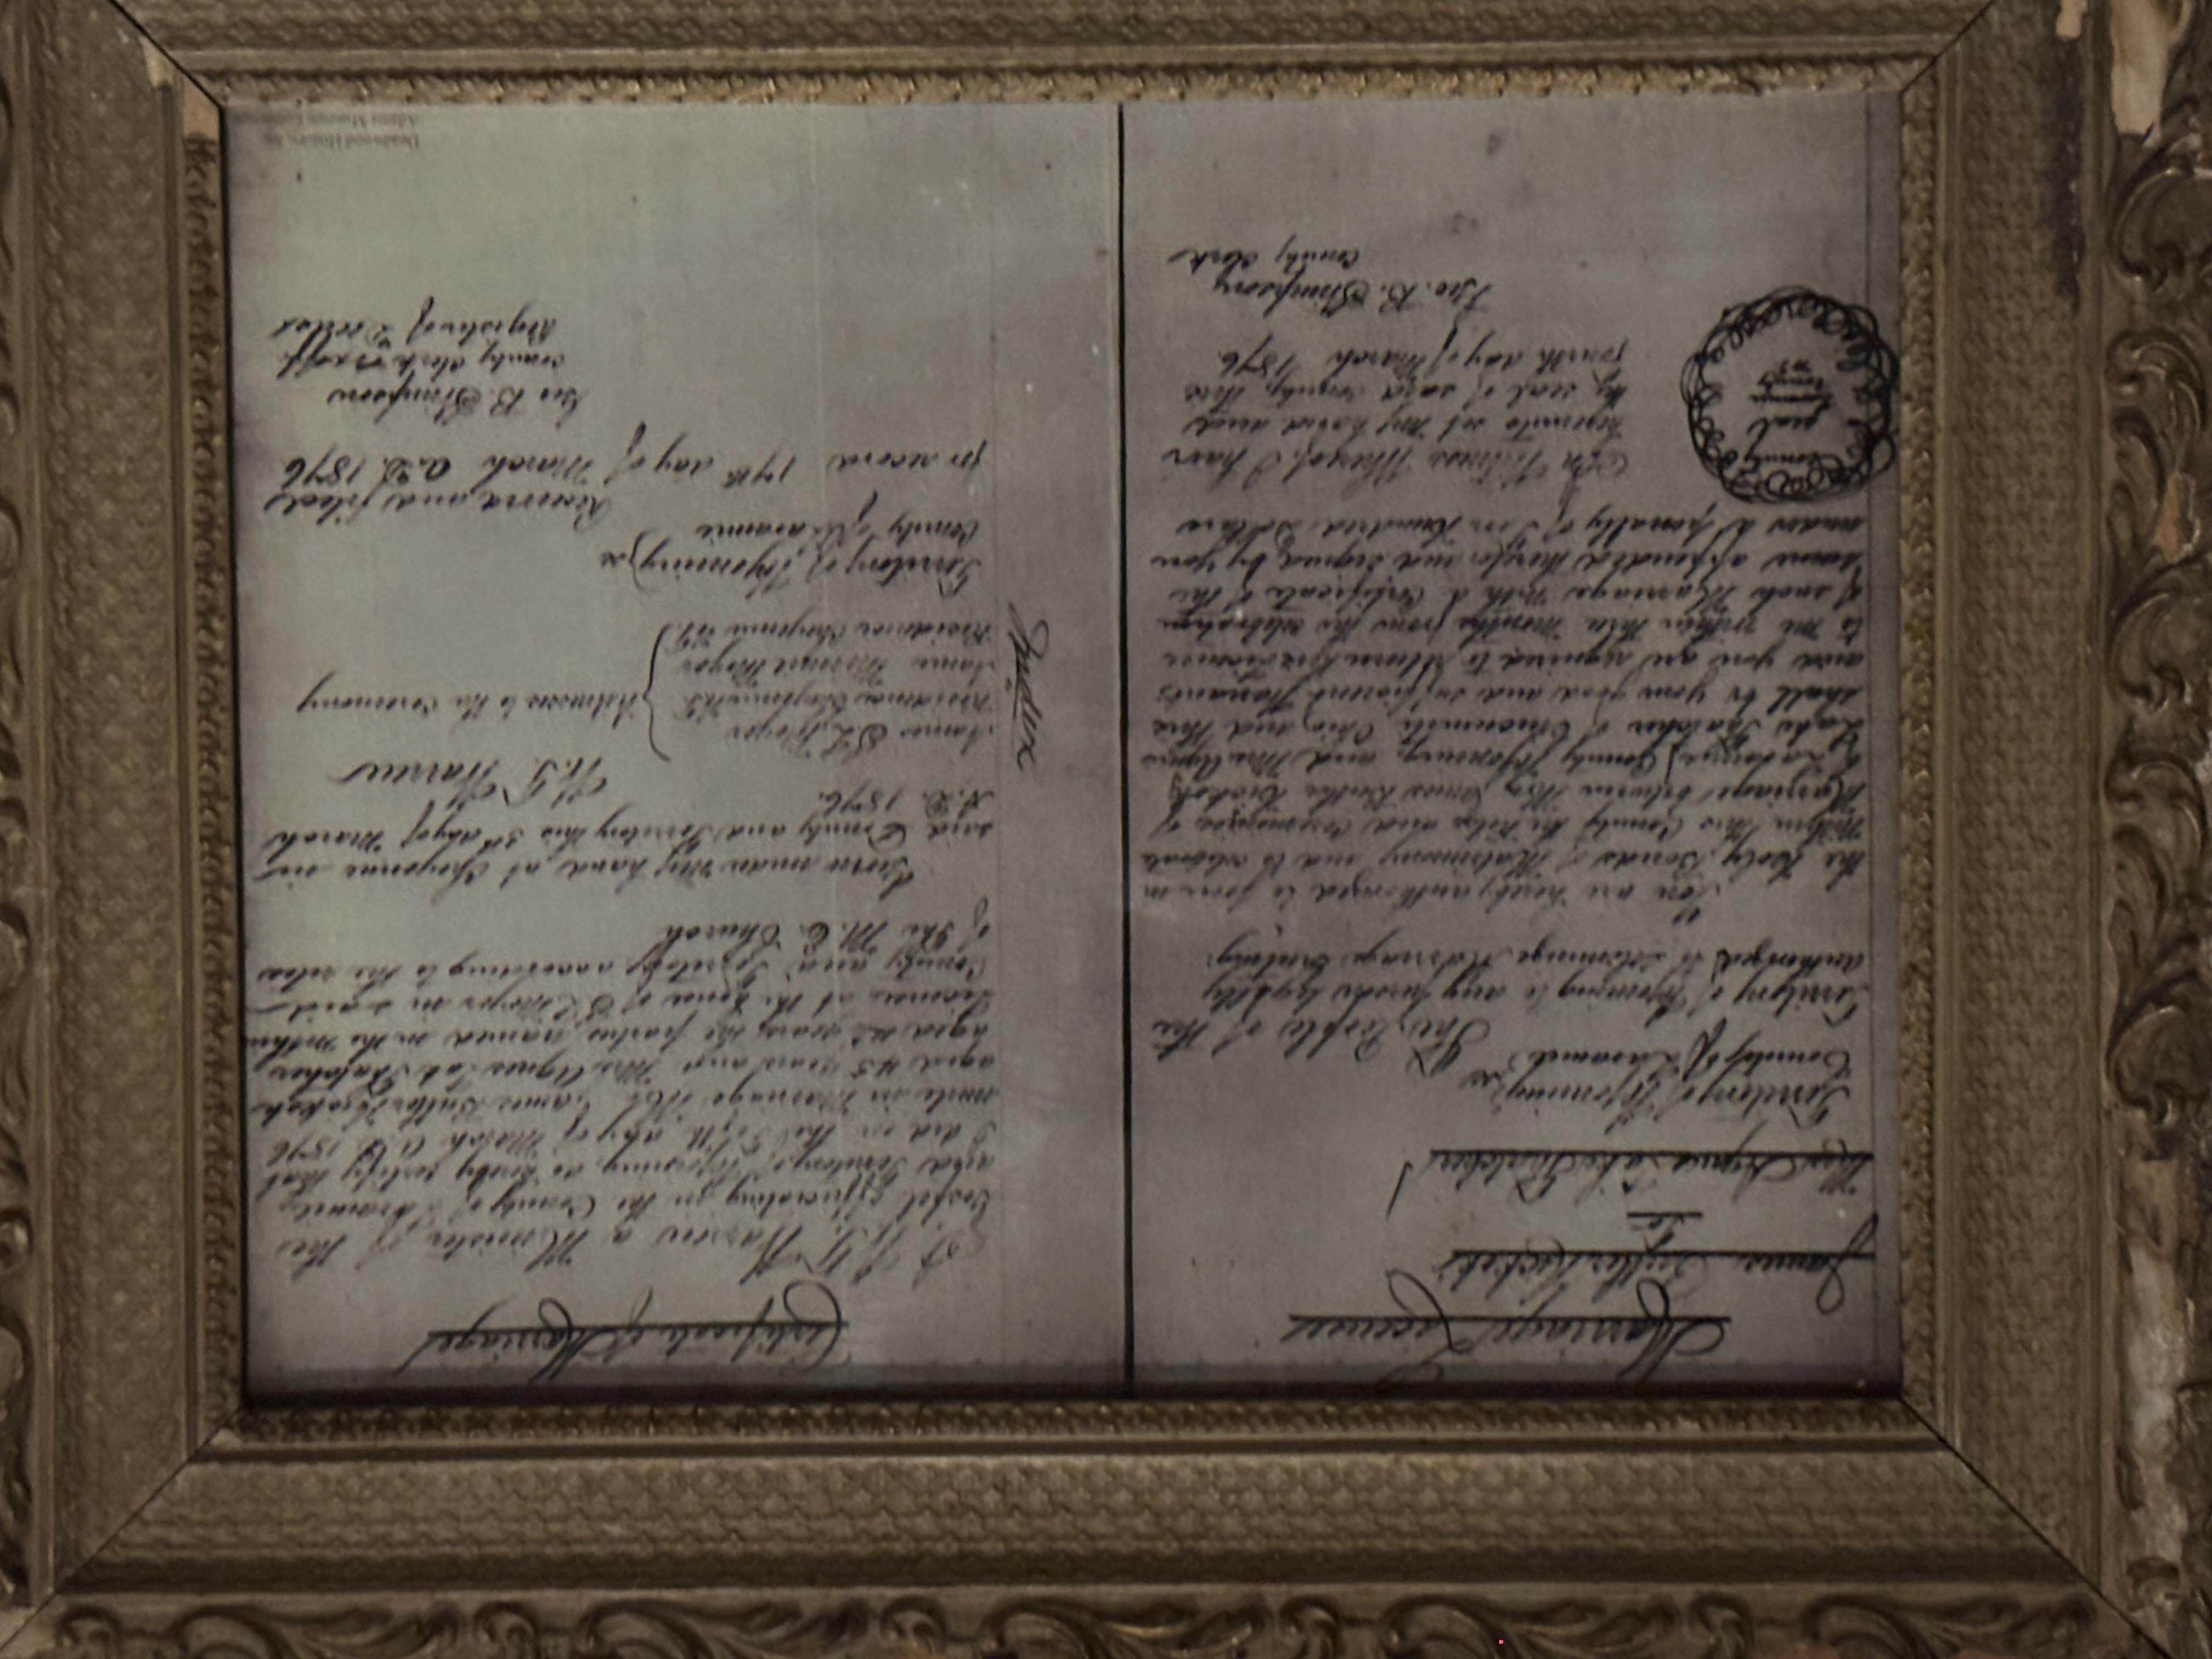 Marriage License
James Butler Hickok
to
Mrs Agnes Lake Thatcher
Territory of Wyoming } ss
County of Laramie
The People of the
Territory of Wyoming to any person legally
authorized to solemnize Marriage Greeting:
You are hereby authorized to join in
the Holy Bonds of Matrimony and to celebrate
within this County the Rites and Ceremonies of
Marriage between Mr James Butler Hickok
of Laramie County Wyoming and Mrs Agnes
Lake Thatcher of Cincinnati Ohio and this
shall be your good and sufficient Warrant
and you are required to return this License
to me within three Months from the celebration
of such Marriage with a Certificate of the
same appended thereto and signed by you
under a penalty of One Hundred Dollars
In Witness Whereof I have
hereunto set my hand and
seal of said County, this
fourth day of March 1876
County
Seal
Geo. B. Stimpson
County Clerk
Certificate of Marriage
I W. F. Warren a Minister of the
Gospel officiating in the County of Laramie
and Territory of Wyoming do hereby certify that
I did on the fifth day of March A.D. 1876
unite in Marriage Mr. James Butler Hickok
aged 45 years and Mrs Agnes Lake Thatcher
aged 42 years the parties named in the within
License at the home of S L Moyer in said
County and Territory according to the rites
of the M. E. Church
Given under my hand at Cheyenne in
said County and Territory this 5th day of March
A. D. 1876.
W. F. Warren
Name S L Moyer
Residence Cheyenne W.T. } Witnesses to the Ceremony
Name Moyer
Residence Cheyenne W.T.
Territory of Wyoming } ss
County of Laramie
Received and filed
for record 17th day of March A.D. 1876
Geo B. Stimpson
County Clerk & Ex off.
Register of Deeds
Deadwood History, Inc.
Adams Museum